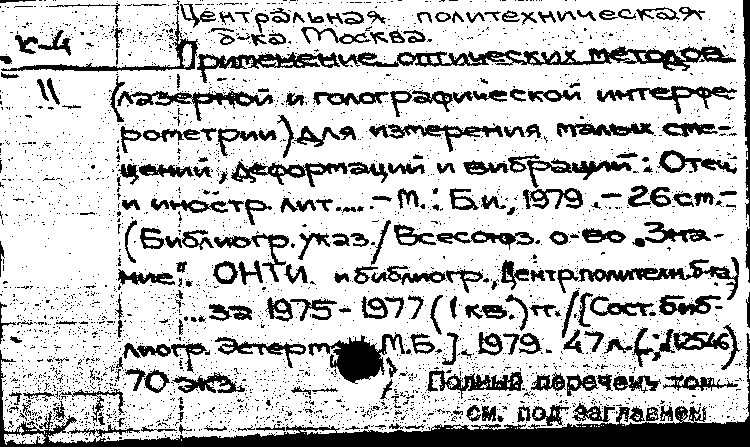 Центральная политехническая
б-ка. Москва.
К-4 Применение оптических методов
11 (лазерной и голографической интерфе-
рометрии) для измерения малых сме-
щений, деформаций и вибраций: Отеч.
и иностр. лит.... - М.: Б.и., 1979. - 26 см. -
(Библиогр. указ. / Всесоюз. о-во „Зна-
ние". ОНТИ и библиогр., Центр. политехн. б-ка)
...за 1975-1977 (I кв.) гг. / [Сост. биб-
лиогр. М.Б.]. 1979. 47 л. (12546)
70 экз. Полный перечень том
см. под заглавием